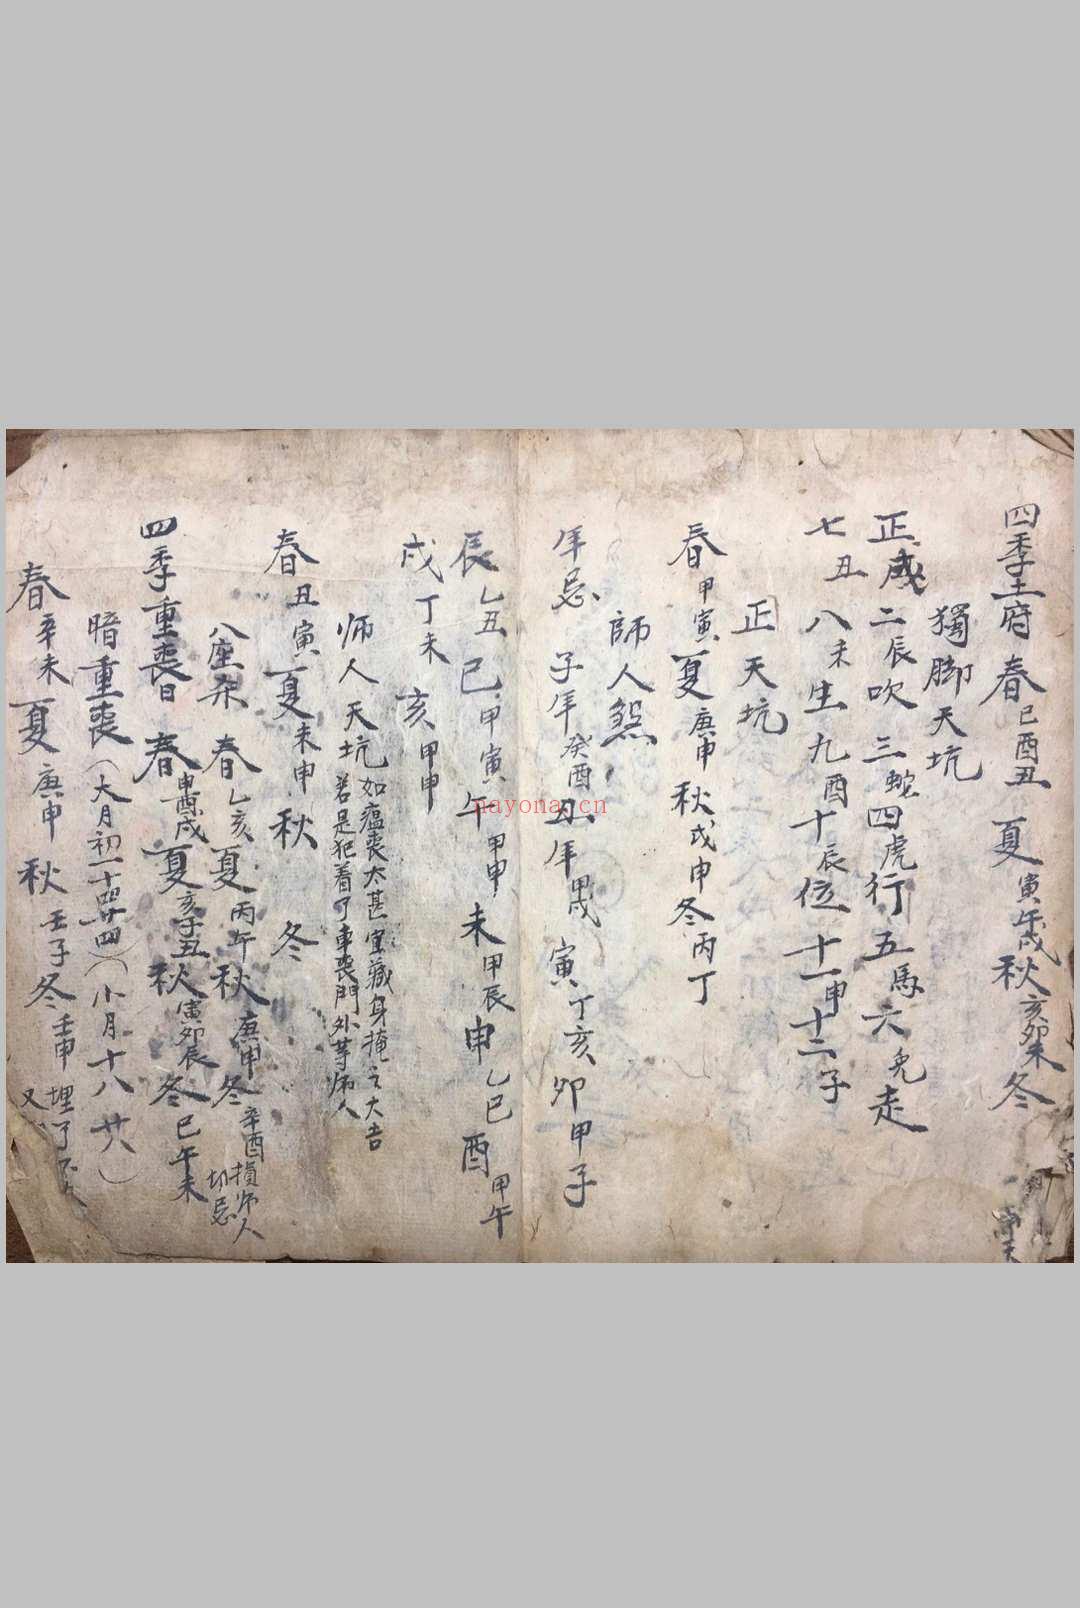 四季土府 春巳酉丑 夏寅午戌 秋亥卯未 冬
獨脚天坑
正戌二辰吹三蛇四虎行五馬六兔走
七丑八未生九酉十辰位十一申十二子
正天坑
春甲寅 夏庚申 秋戊申 冬丙丁
師人煞
年忌 子年癸酉 丑年甲戌 寅丁亥 卯甲子
辰乙丑 巳甲寅 午甲申 未甲辰 申乙巳 酉甲午
戌丁未 亥甲申
师人天坑 如瘟喪太甚宜藏身掩之大吉
若是犯着了車喪門外等师人
春丑寅 夏未申 秋 冬
八座 春乙亥 夏丙午 秋庚申 冬辛酉 損师人
切忌
四季重喪日 春申酉戌 夏亥子丑 秋寅卯辰 冬巳午未
暗重喪(大月初一十四廿四)(小月十八廿八)
春辛未 夏庚申 秋壬子 冬壬申 埋了
又
nayona.cn